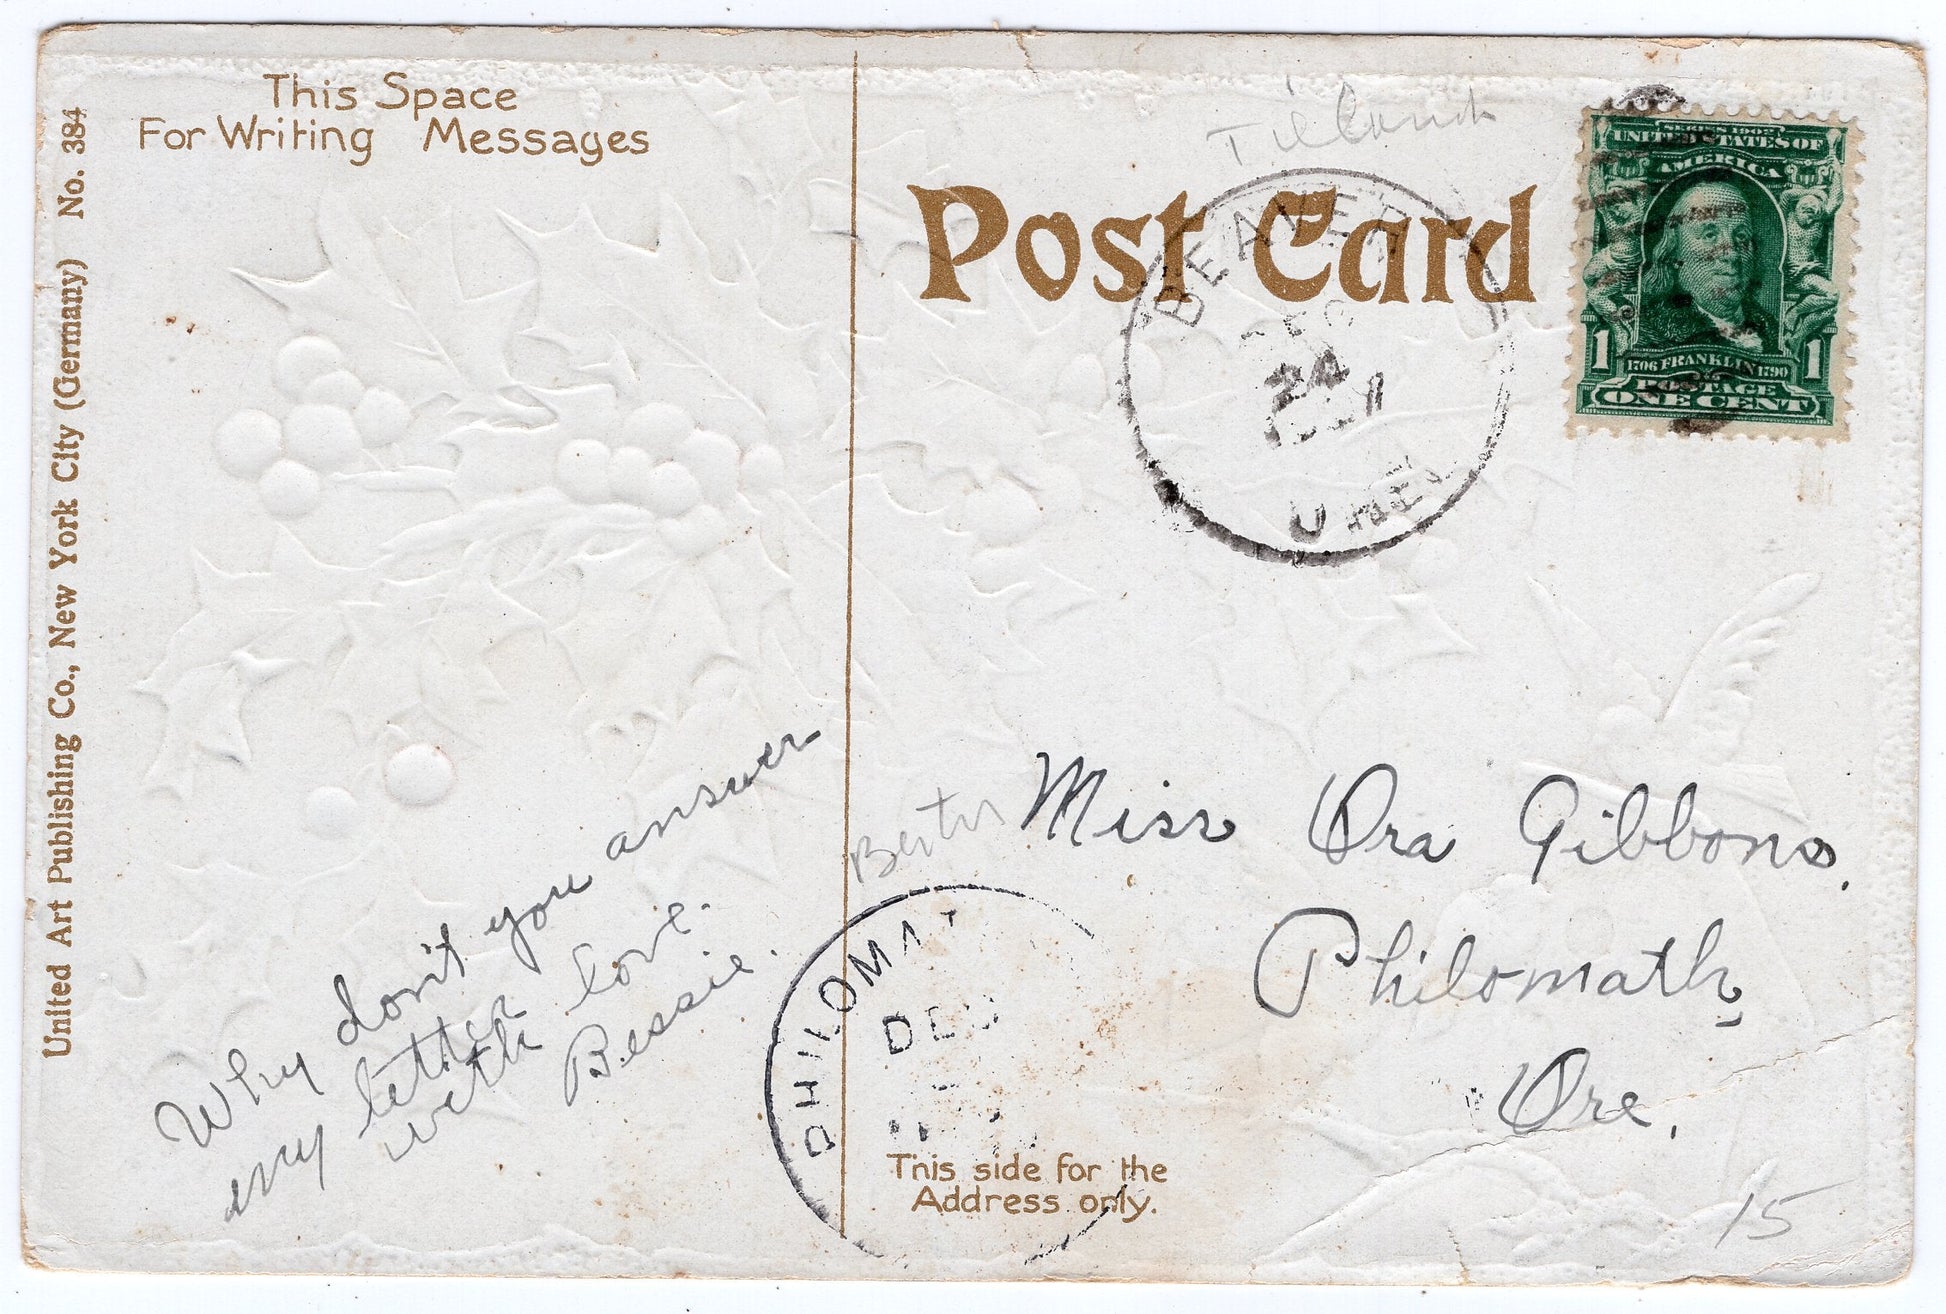 This Space
For Writing Messages
United Art Publishing Co., New York City (Germany) No. 384
Why don't you answer
my letter
with love.
Bessie.
Post Card
BEAVER
DEC
24
SERIES 1902
UNITED STATES OF
AMERICA
1706 FRANKLIN 1790
1 1
POSTAGE
ONE CENT
Miss Ora Gibbons.
Philomath
Ore.
PHILOMAT
DEC
This side for the
Address only.
15